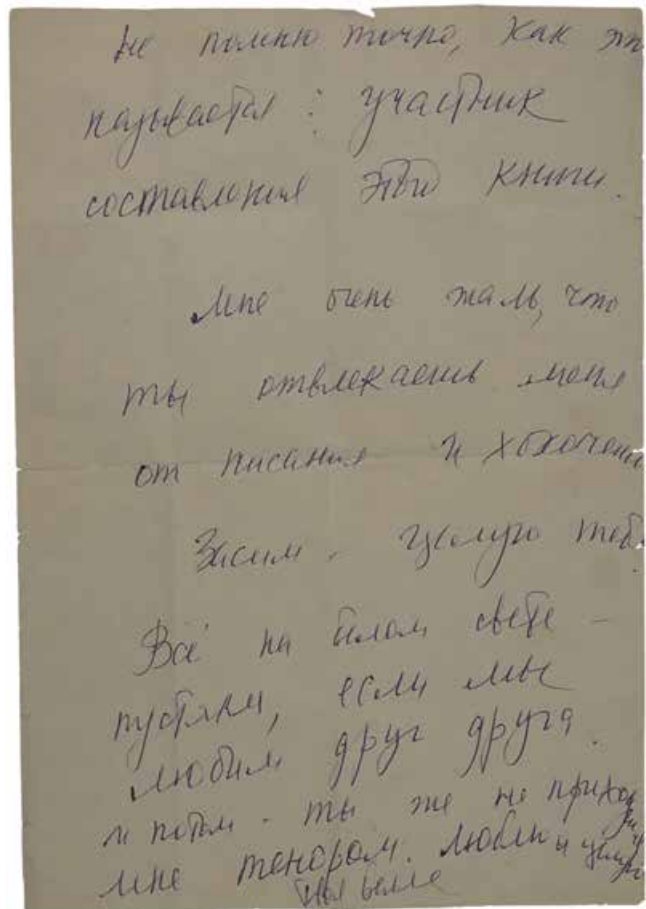 не помню точно, как эт
называется: участник
составления этой книги.
Мне очень жаль, что
ты отвлекаешь меня
от писания и хохочешь
Засим. Целую теб
Всё на белом свете —
пустяки, если мы
любим друг друга.
и потом. ты же не приход
мне тенором. Люблю и целую